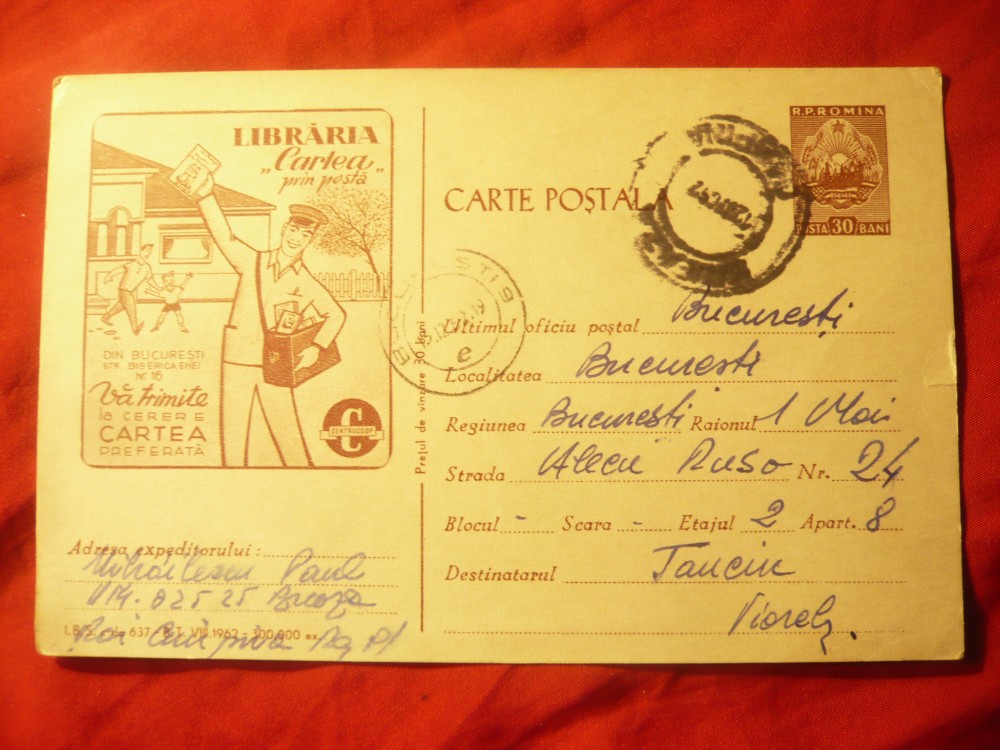 LIBRĂRIA
„Cartea
prin poștă"
DIN BUCUREȘTI
STR. BISERICA ENEI
Nr. 16
Vă trimite
la CERERE
CARTEA
PREFERATĂ
CENTROCOOP
Prețul de vînzare 30 bani
Adresa expeditorului :
Mihăilescu Paul
UM. 02525 Breaza
Rai Cîmpina Reg Pl
637 VIII.1962 - 300.000 ex.
R.P.ROMINA
POSTA 30 BANI
CARTE POȘTALĂ
BUCUREȘTI 9
e
Ultimul oficiu poștal București
Localitatea București
Regiunea București Raionul 1 Mai
Strada Alecu Ruso Nr. 24
Blocul - Scara - Etajul 2 Apart. 8
Destinatarul Tanciu
Viorel